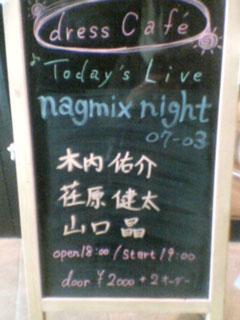 dress Café
Today's Live
nagmix night
07-03
木内佑介
荏原健太
山口晶
open18:00/Start 19:00
door ¥2000+2オーダー